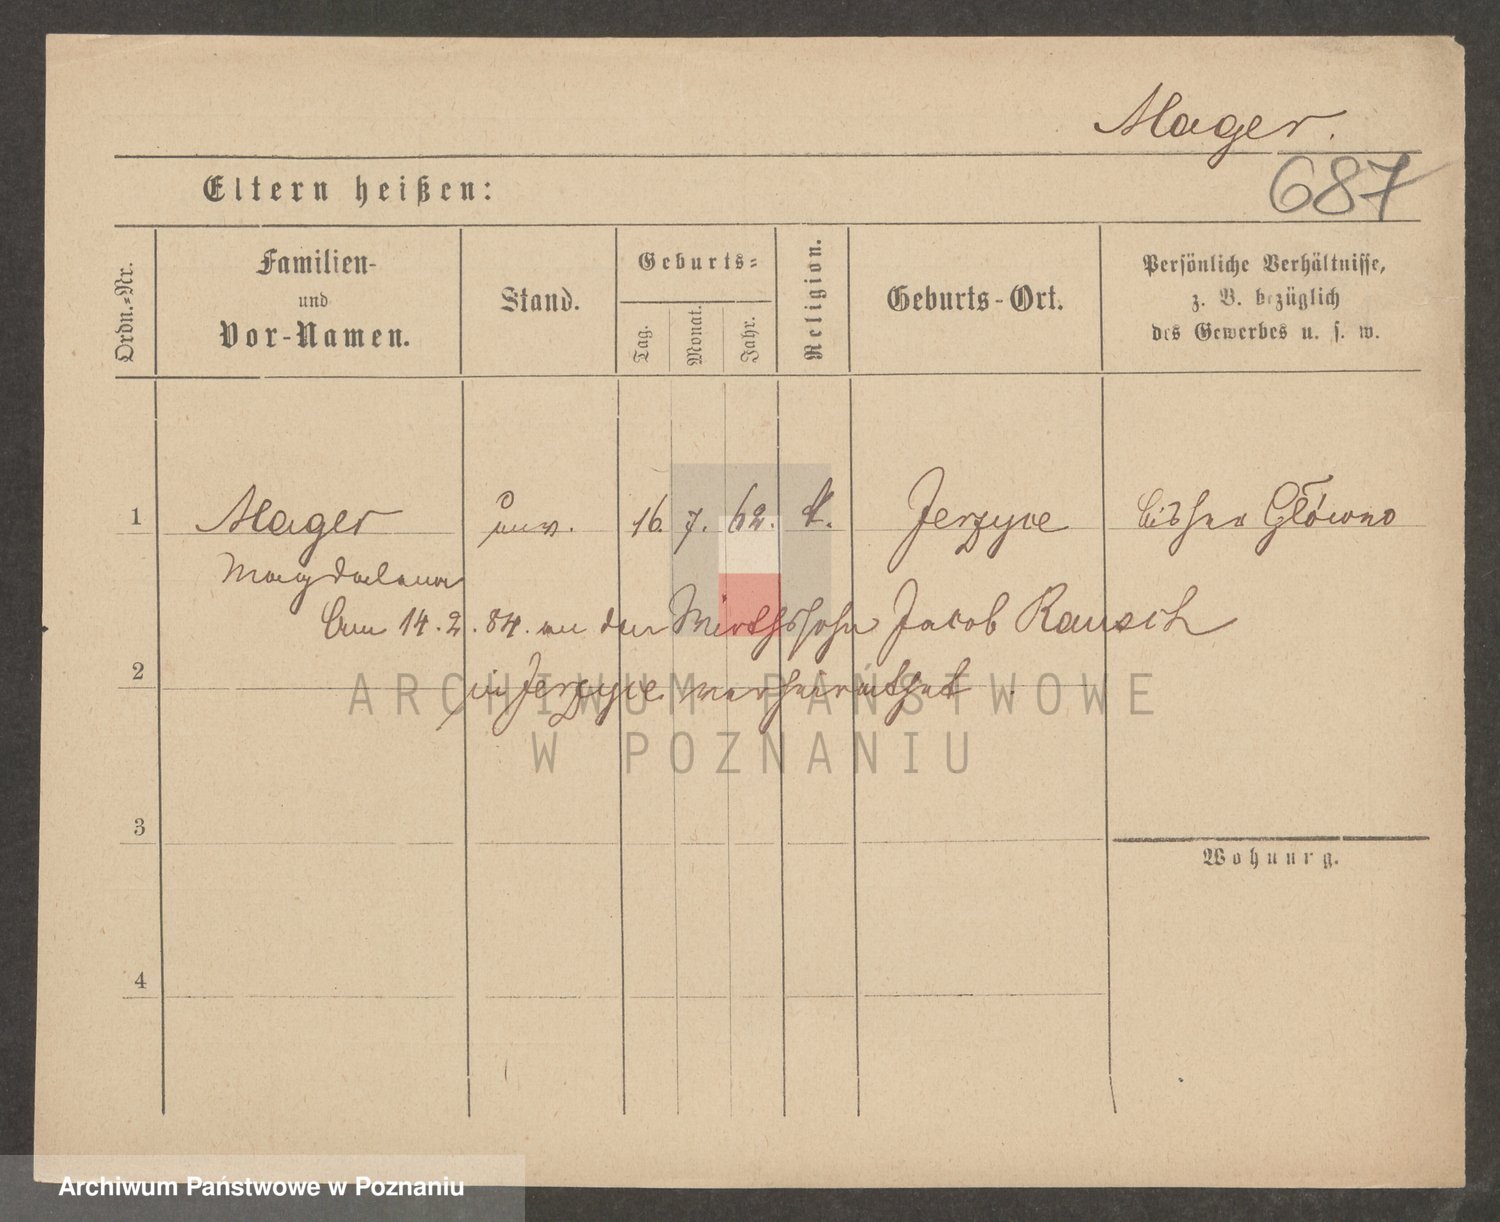 Mager.
687
Eltern heißen:
Ordn.-Nr.
Familien-
und
Vor-Namen.
Stand.
Geburts-
Tag.
Monat.
Jahr.
Religion.
Geburts-Ort.
Persönliche Verhältnisse,
z. B. bezüglich
des Gewerbes u. s. w.
1 Mager unv. 16. 7. 62. k. Jerzyce bisher Główno
Magdalena
Am 14.2.84. an den Wirthssohn Jacob Rausch
2 in Jerzyce verheirathet.
ARCHIWUM PAŃSTWOWE
W POZNANIU
3
Wohnung.
4
Archiwum Państwowe w Poznaniu